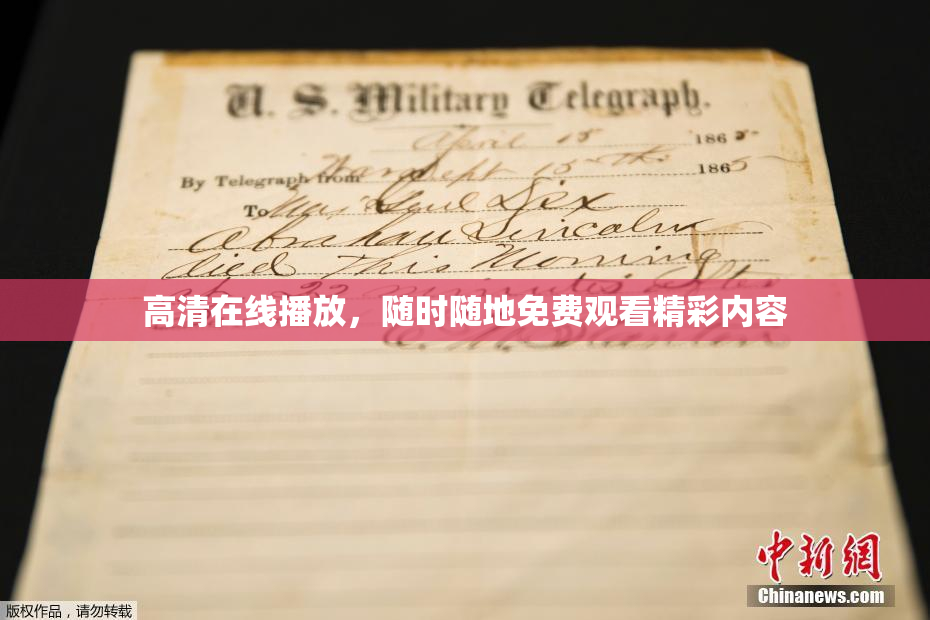 U. S. Military Telegraph.
April 15 1865
By Telegraph from War Dept 15th 1865
To Maj Genl Dix
Abraham Lincoln
died This Morning
22 minutes after
高清在线播放，随时随地免费观看精彩内容
中新网
Chinanews.com
版权作品，请勿转载